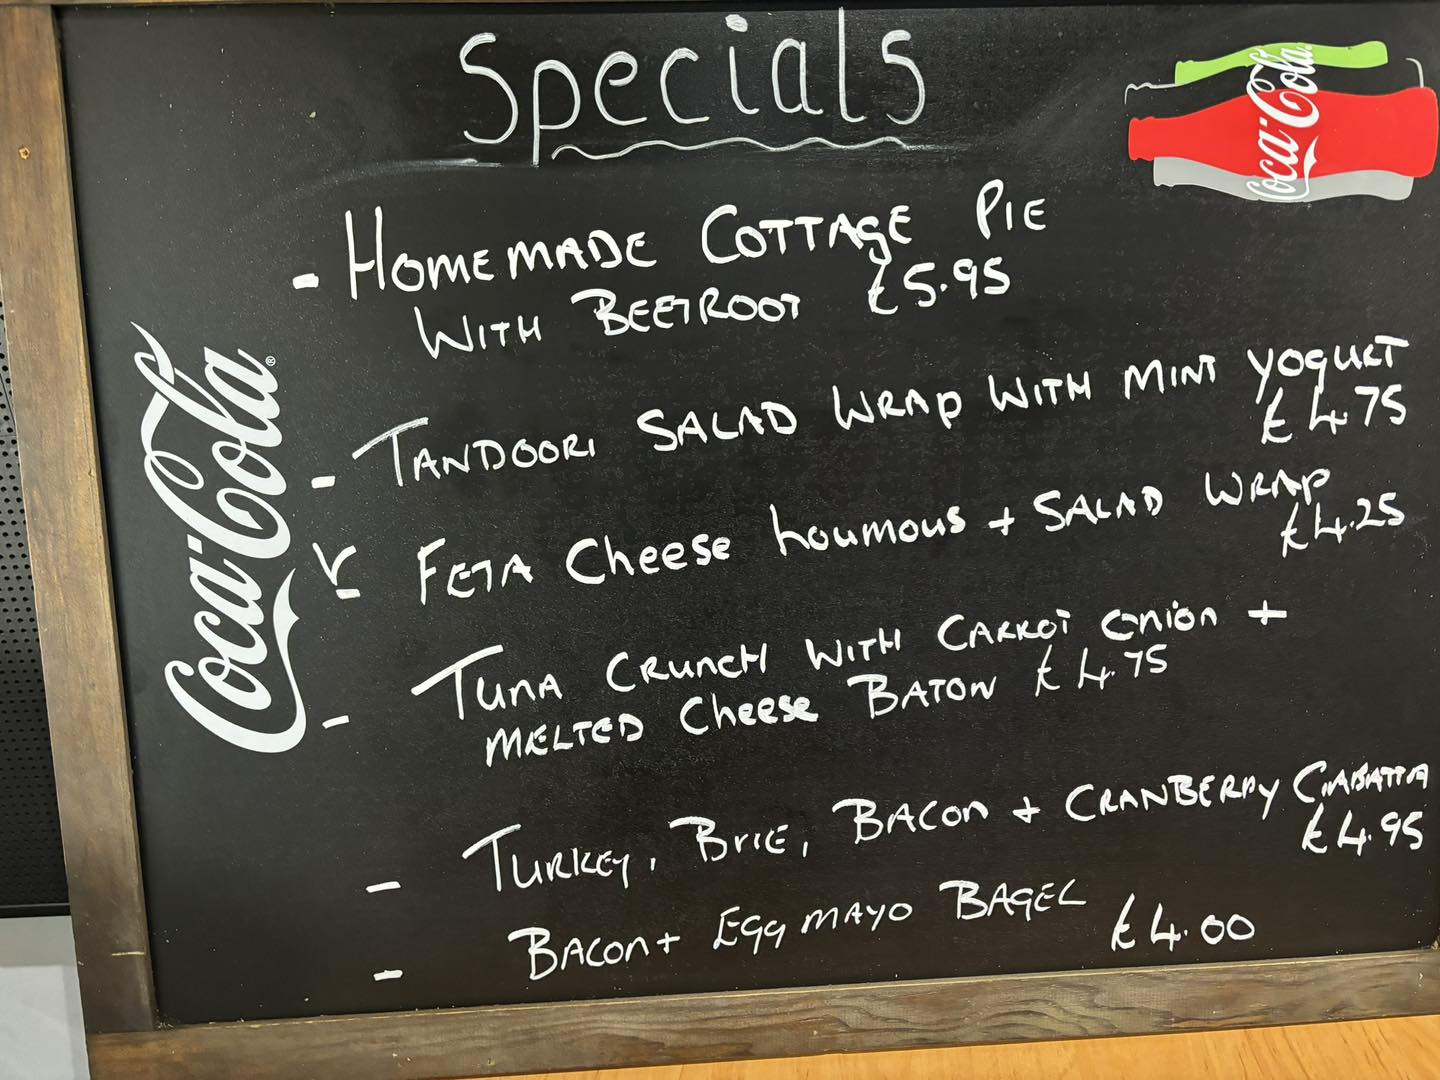 Specials
Coca-Cola
Coca-Cola®
- HOMEMADE COTTAGE PIE
WITH BEETROOT £5.95
- TANDOORI SALAD WRAP WITH MINT YOGURT
£4.75
V FETA Cheese houmous + SALAD WRAP
£4.25
- TUNA CRUNCH WITH CARROT onion +
MELTED Cheese BATON £4.75
- TURKEY, BRIE, BACON + CRANBERRY CIABATTA
£4.95
- BACON + EGG MAYO BAGEL
£4.00